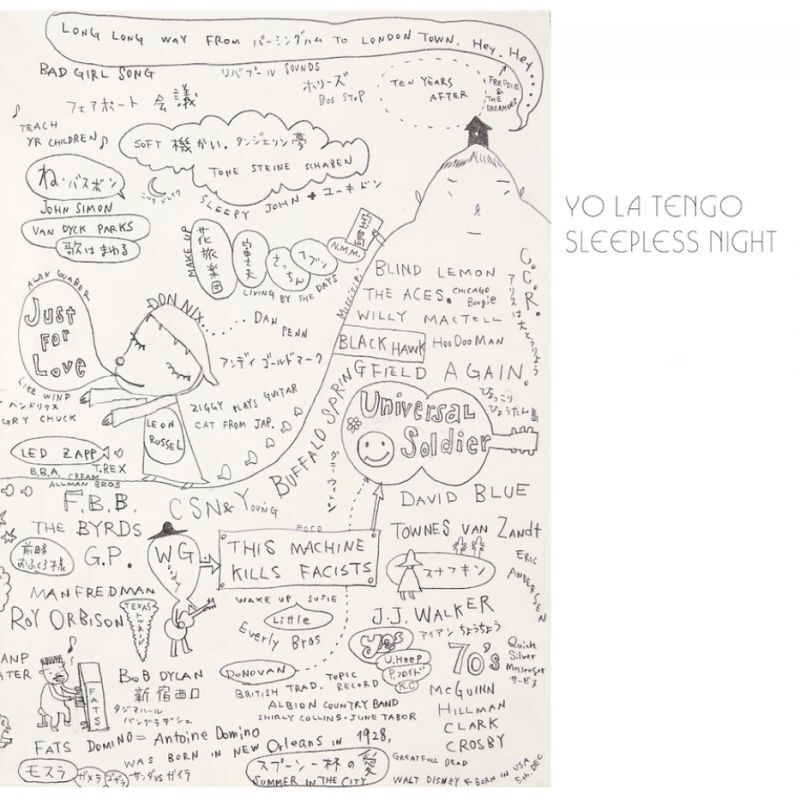 LONG LONG WAY FROM バーミンガム TO LONDON TOWN. HEY. HEY...
BAD GIRL SONG
リバプール SOUNDS
ホリーズ
BUS STOP
TEN YEARS
AFTER
FREDDIE
&
THE
DREAMERS
フェアポート 会議
TEACH
YR CHILDREN
SOFT 機かい。タンジェリン 夢
TONE STEINE SCHABEN
SLEEPY JOHN + ユーキドン
ね・バスボン
JOHN SIMON
VAN DYCK PARKS
歌はまわる
YO LA TENGO
SLEEPLESS NIGHT
MAKE UP
花旅楽団
さっちん
N.M.M.
LIVING BY THE DAYS
BLIND LEMON
THE ACES.
CHICAGO
Boogie
WILLY MACTELL
BLACK HAWK
HooDooMAN
C.C.R.
ALAN GUABER
Just
For
Love
DON NIX........
DAN
PENN
アンディ ゴールドマーク
BUFFALO SPRINGFIELD AGAIN.
ひょっこり
ひょうたん
LIKE WIND
ヘンドリクス
GRY CHUCK
LEON
RUSSEL
ZIGGY PLAYS GUITAR
CAT FROM JAP.
Universal
Soldier
LED ZAPP
B.B.A.
CREAM
T.REX
ALLMAN BROS
F.B.B.
CSN& Young
DAVID BLUE
THE BYRDS
POCO
TOWNES VAN ZANDT
前略
おふくろ様
G.P.
WG
THIS MACHINE
KILLS FACISTS
スナフキン
ERIC
ANDERSEN
MANFREDMAN
WAKE UP SUFIE
J.J. WALKER
ROY ORBISON
TEXAS
Little
Everly Bros
Yes
アイアン ちょうちょう
U.HEEP
K.C
70's
Quick
Silver
Messenger
サービス
FATS
BOB DYLAN
新宿西口
タジマハール
バングラデシュ
DONOVAN
TOPIC
RECORD
BRITISH TRAD.
ALBION COUNTRY BAND
SHIRLY COLLINS + JUNE TABOR
McGUINN
HILLMAN
CLARK
CROSBY
FATS DOMINO = Antoine Domino
WAS BORN IN NEW Orleans IN 1928,
モスラ
ガメラ
ゴジラ
サンダ VS ガイラ
スプーン一杯の愛
SUMMER IN THE CITY
GREATFULL DEAD
WALT DISNEY
BORN IN USA
5th. DEC